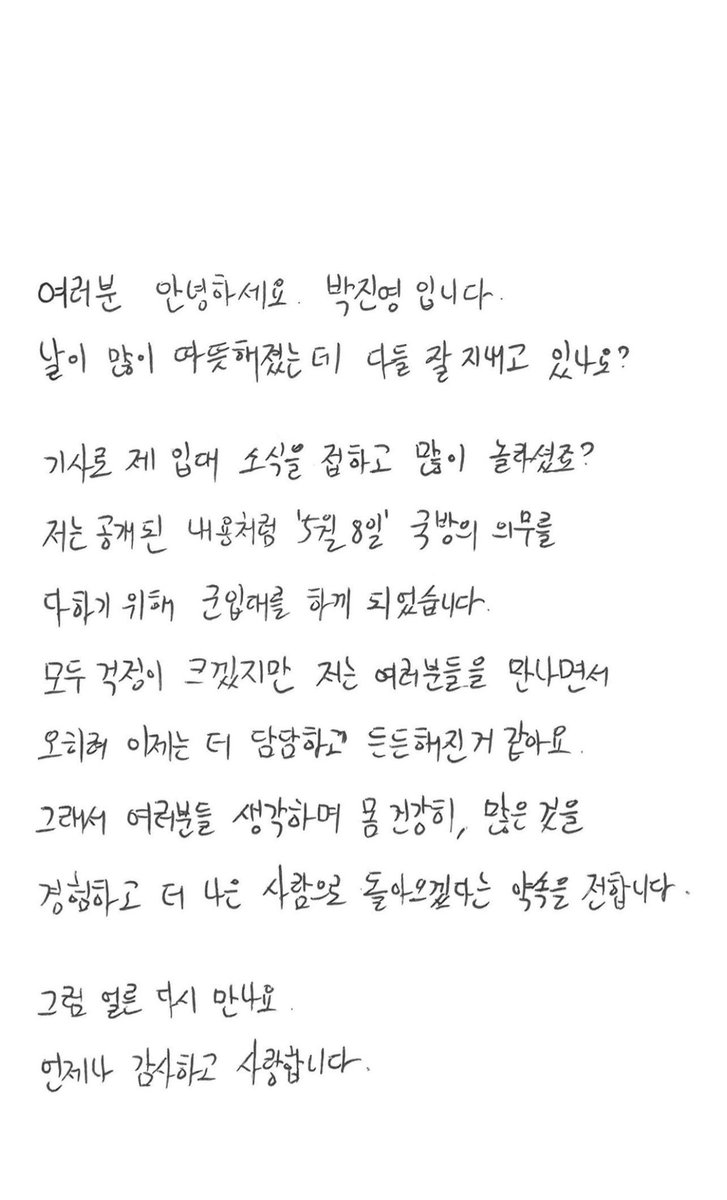 여러분 안녕하세요. 박진영입니다.
날이 많이 따뜻해졌는데 다들 잘 지내고 있나요?
기사로 제 입대 소식을 접하고 많이 놀라셨죠?
저는 공개된 내용처럼 '5월 8일' 국방의 의무를
다하기 위해 군입대를 하게 되었습니다.
모두 걱정이 크겠지만 저는 여러분들을 만나면서
오히려 이제는 더 담담하고 든든해진거 같아요.
그래서 여러분들 생각하며 몸 건강히, 많은 것을
경험하고 더 나은 사람으로 돌아오겠다는 약속을 전합니다.
그럼 얼른 다시 만나요.
언제나 감사하고 사랑합니다.